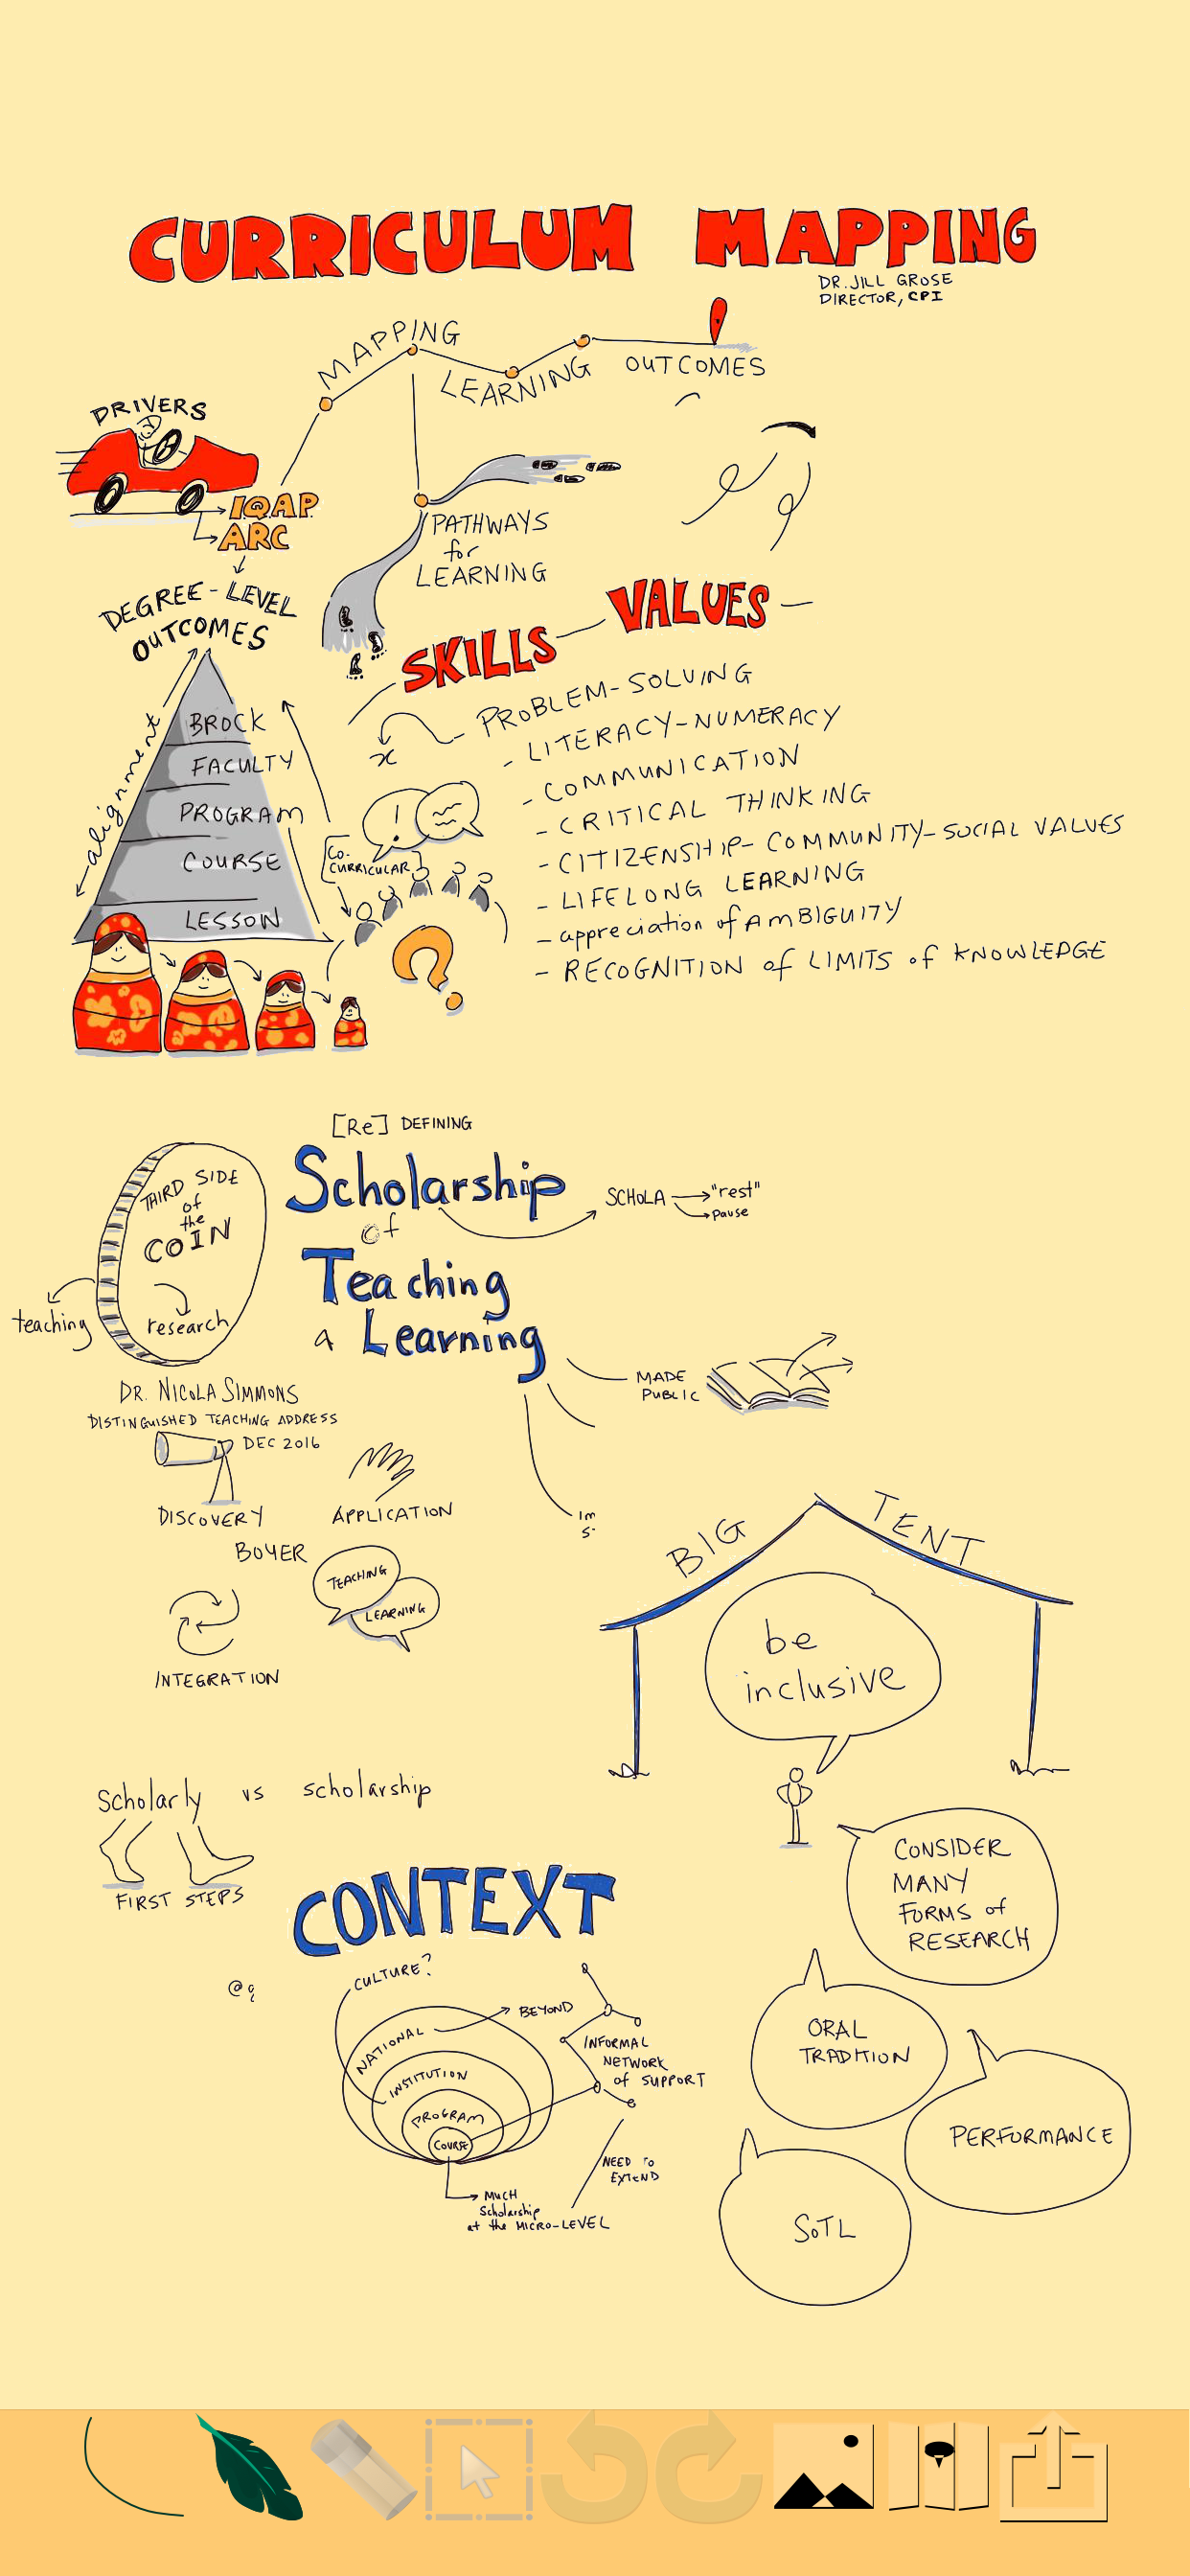 CURRICULUM MAPPING
DR. JILL GROSE
DIRECTOR, CPI
MAPPING
LEARNING
OUTCOMES
DRIVERS
IQAP
ARC
PATHWAYS
for
LEARNING
DEGREE-LEVEL
OUTCOMES
alignment
BROCK
FACULTY
PROGRAM
COURSE
LESSON
SKILLS
VALUES
x
- PROBLEM-SOLVING
- LITERACY-NUMERACY
- COMMUNICATION
- CRITICAL THINKING
- CITIZENSHIP-COMMUNITY-SOCIAL VALUES
- LIFELONG LEARNING
- appreciation of AMBIGUITY
- RECOGNITION of LIMITS of KNOWLEDGE
!
CO-
CURRICULAR
?
[Re] DEFINING
Scholarship
of
Teaching
a Learning
SCHOLA
"rest"
pause
THIRD SIDE
of
the
COIN
teaching
research
MADE
PUBLIC
DR. NICOLA SIMMONS
DISTINGUISHED TEACHING ADDRESS
DEC 2016
DISCOVERY
APPLICATION
BOYER
TEACHING
LEARNING
INTEGRATION
Im
BIG TENT
be
inclusive
Scholarly vs scholarship
FIRST STEPS
CONSIDER
MANY
FORMS of
RESEARCH
ORAL
TRADITION
PERFORMANCE
SoTL
CONTEXT
CULTURE?
NATIONAL
BEYOND
INSTITUTION
PROGRAM
COURSE
INFORMAL
NETWORK
of SUPPORT
NEED TO
EXTEND
MUCH
Scholarship
at the MICRO-LEVEL